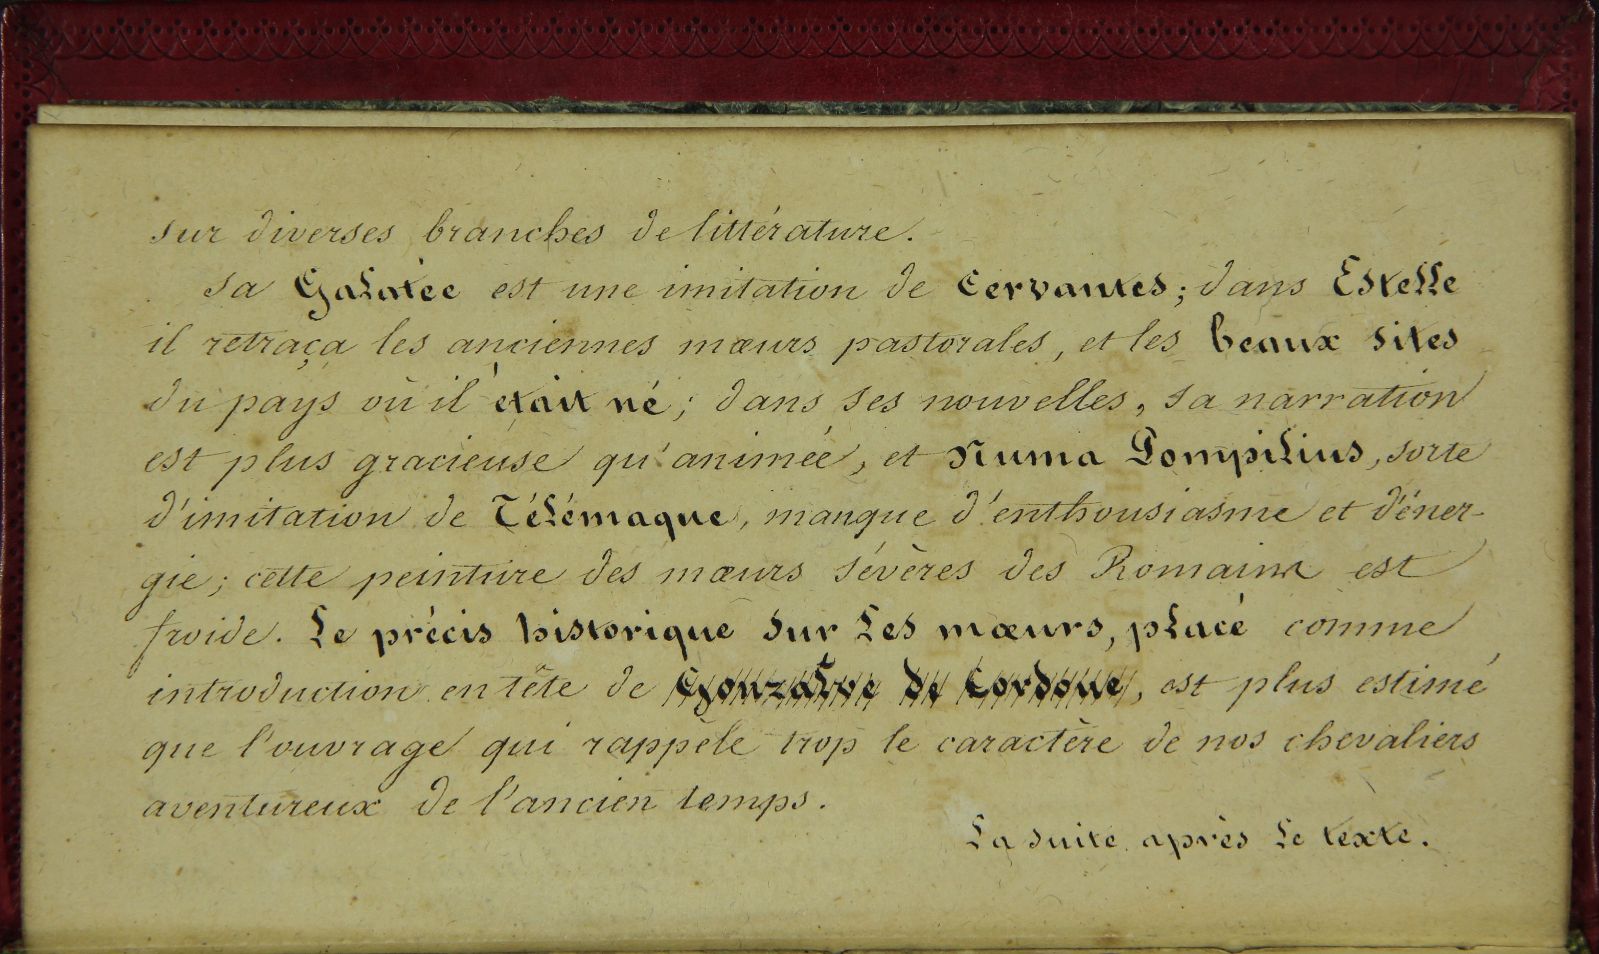 sur diverses branches de littérature.
Sa Galatée est une imitation de Cervantes; dans Estelle
il retraça les anciennes mœurs pastorales, et les beaux sites
du pays où il était né; dans ses nouvelles, sa narration
est plus gracieuse qu'animée, et Numa Pompilius, sorte
d'imitation de Télémaque, manque d'enthousiasme et d'éner-
gie; cette peinture des mœurs sévères des Romains est
froide. Le précis historique sur les mœurs, placé comme
introduction en tête de Gonzalve de Cordoue, est plus estimé
que l'ouvrage qui rappèle trop le caractère de nos chevaliers
aventureux de l'ancien temps.
La suite après le texte.